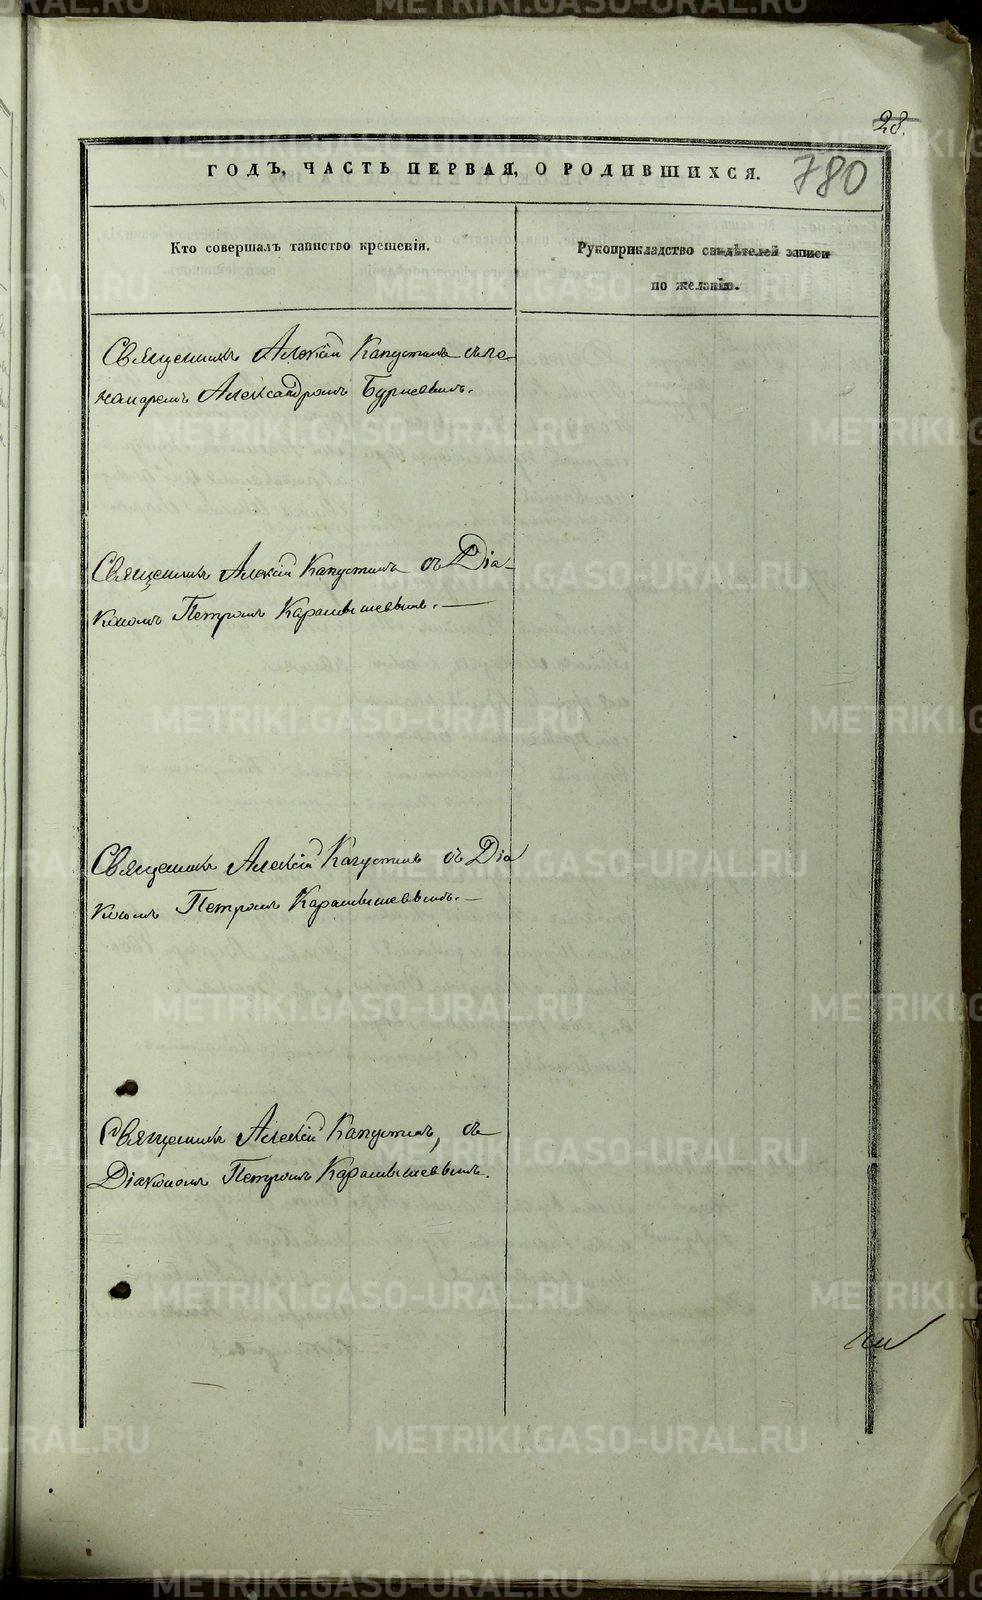 28.
780
ГОДЪ, ЧАСТЬ ПЕРВАЯ, О РОДИВШИХСЯ.
Кто совершалъ таинство крещенія.
Рукоприкладство свидѣтелей записи
по желанію.
Священникъ Алексій Капустинъ съ по
номаремъ Александромъ Бурневымъ.
Священникъ Алексій Капустинъ съ Діа-
кономъ Петромъ Карамышевымъ. —
Священникъ Алексій Капустинъ съ Діа
кономъ Петромъ Карамышевымъ. —
Священникъ Алексій Капустинъ, съ
Діакономъ Петромъ Карамышевымъ.
METRIKI.GASO-URAL.RU